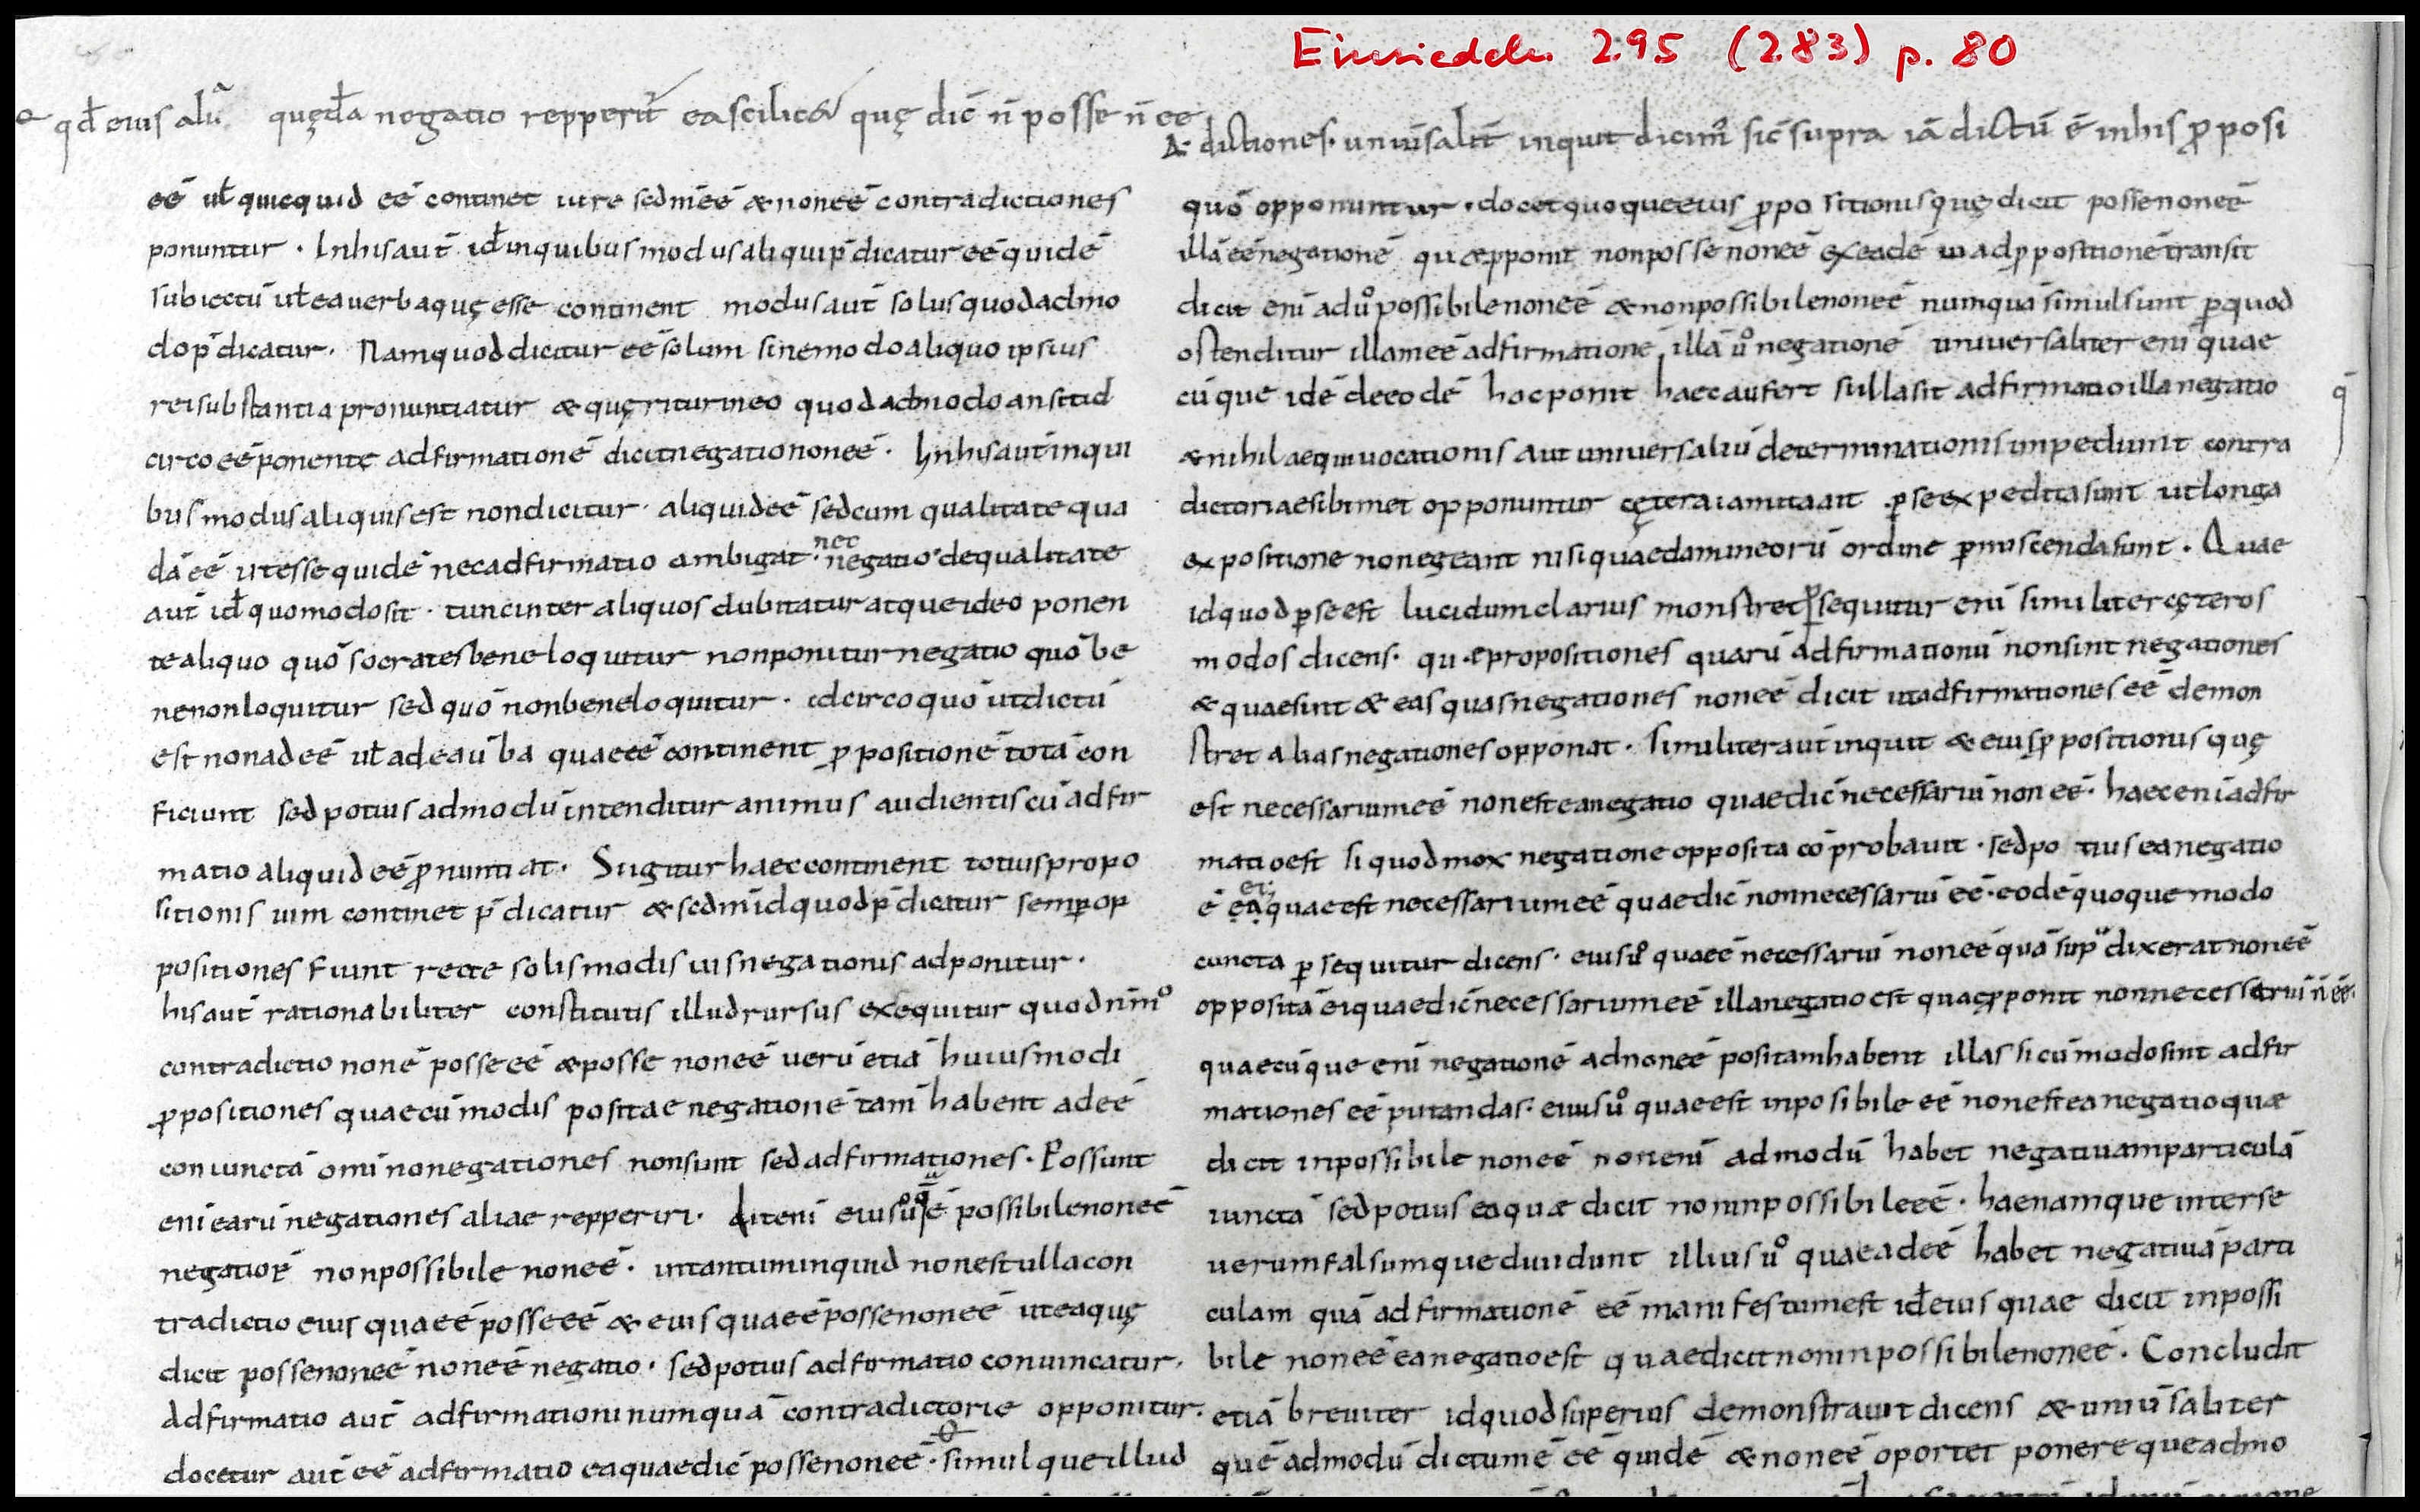 Einsiedeln 295 (283) p. 80
qd̄ eius alt̄ quęd̄a negatio repperit̄ ea scilicet quę dic̄ n̄ posse n̄ ee
A· dictiones· uniūsalit̄ inquit dicim᷒ sic̄ supra iā dictū ē in his ꝓposi
eē uł quicquid eē continet iure sed neē & non eē contradictiones
ponuntur · In his aut̄ id̄ inquibus modus aliqui p̄dicatur eē quidē
subiectū uł ea uerba quę esse continent modus aut̄ solus quod admo
do p̄dicatur· Nam quod dicitur eē solum sine modo aliquo ipsius
rei substantia pronuntiatur & quęritur in eo quod admodo an sit id
circo eē ponente adfirmationē dicit negatio non eē · In his aut̄ inqui
bus modus aliquis est non dicitur · aliquid eē sed cum qualitate qua
dā eē ut esse quidē nec adfirmatio ambigat · nec negatio de qualitate
aut̄ id̄ quomodo sit · tunc inter aliquos dubitatur atque ideo ponen
te aliquo quō socrates bene loquitur non ponitur negatio quō be
ne non loquitur sed quō non bene loquitur · idcirco quō ut dictū
est non ad eē uł ad ea ūba quae eē continent ꝓpositionē totā con
ficiunt sed potius ad modū intenditur animus audientis cū adfir
matio aliquid eē ꝓnuntiat· Si igitur haec continent totius propo
sitionis uim continet p̄dicatur & sedm̄ id quod p̄dicatur semꝑ op
positiones fiunt recte solis modis uis negationis adponitur ·
his aut̄ rationabiliter constitutis illud rursus exequitur quod nim̊
contradictio non ē posse eē & posse non eē uerū etiā huiusmodi
ꝓpositiones quaecū modis positae negationē tam̄ habent ad eē
coniunctā omīno negationes non sunt sed adfirmationes · Possunt
eni earū negationes aliae repperiri · Ait eni eius ů q̄ ē possibile non eē
negatio ē non possibile non eē · in tantum inquid non est ulla con
tradictio eius quae ē posse eē & eius quae ē posse non eē ut ea quę
dicit posse non eē non eē negatio · sed potius adfirmatio conuincatur ·
Adfirmatio aut̄ adfirmationi numquā contradictorie opponitur ·
docetur aut̄ eē adfirmatio ea quae dic̄ posse non eē · simulque illud
quō opponuntur · docet quoque eius ꝓpositionis quę dicit posse non eē
illā eē negationē quae ꝓponit non posse non eē ex eadē uia ad ꝓpositionē transit
dicit eni ad ů possibile non eē & non possibile non eē numquā simul sunt ꝑ quod
ostenditur illam eē adfirmationē illā ů negationē uniuersaliter eni quae
cūque idē de eodē hoc ponit haec aufert si illa sit adfirmatio illa negatio
& nihil aequiuocationis aut uniuersaliū determinationis impediunt contra
dictoriae sibimet opponuntur cętera iam ita ait · ꝑ se expedita sunt ut longa
expositione non egeant nisi quaedam in eorū ordine ꝑmiscenda sunt · Quae
id quod ꝑ se est lucidum clarius monstret ꝑsequitur eni similiter cęteros
modos dicens · quae propositiones quarū adfirmationū non sint negationes
& quae sint & eas quas negationes non eē dicit ita adfirmationes eē demon
stret alias negationes opponat · Similiter aut̄ inquit & eius ꝓpositionis quę
est necessarium eē non est ea negatio quae dic̄ necessariū non eē · haec eni adfir
matio est si quod mox negatione opposita cōprobauit · sed potius ea negatio
ē ei quae est necessarium eē quae dic̄ non necessariū eē · eodē quoque modo
cuncta ꝑsequitur dicens · eius ů quae ē necessariū non eē quā sup̄ dixerat non eē
oppositā ei quae dic̄ necessarium eē illa negatio est quae ꝓponit non necessariū n̄ eē·
quaecūque eni negationē ad non eē positam habent illas si cū modo sint adfir
mationes eē putandas · eius ů quae est inposibile eē non est ea negatio quae
dicit inpossibile non eē non eni ad modū habet negatiuam particulā
iunctā sed potius ea quae dicit non inpossibile eē · hae namque inter se
uerum falsumque diuidunt illius ů quae ad eē habet negatiuā parti
culam quā adfirmationē eē manifestum est id̄ eius quae dicit inpossi
bile non eē ea negatio est quae dicit non inpossibile non eē · Concludit
etiā breuiter id quod superius demonstrauit dicens & uniūsaliter
quē admodū dictum ē eē quidē & non eē oportet ponere que admo